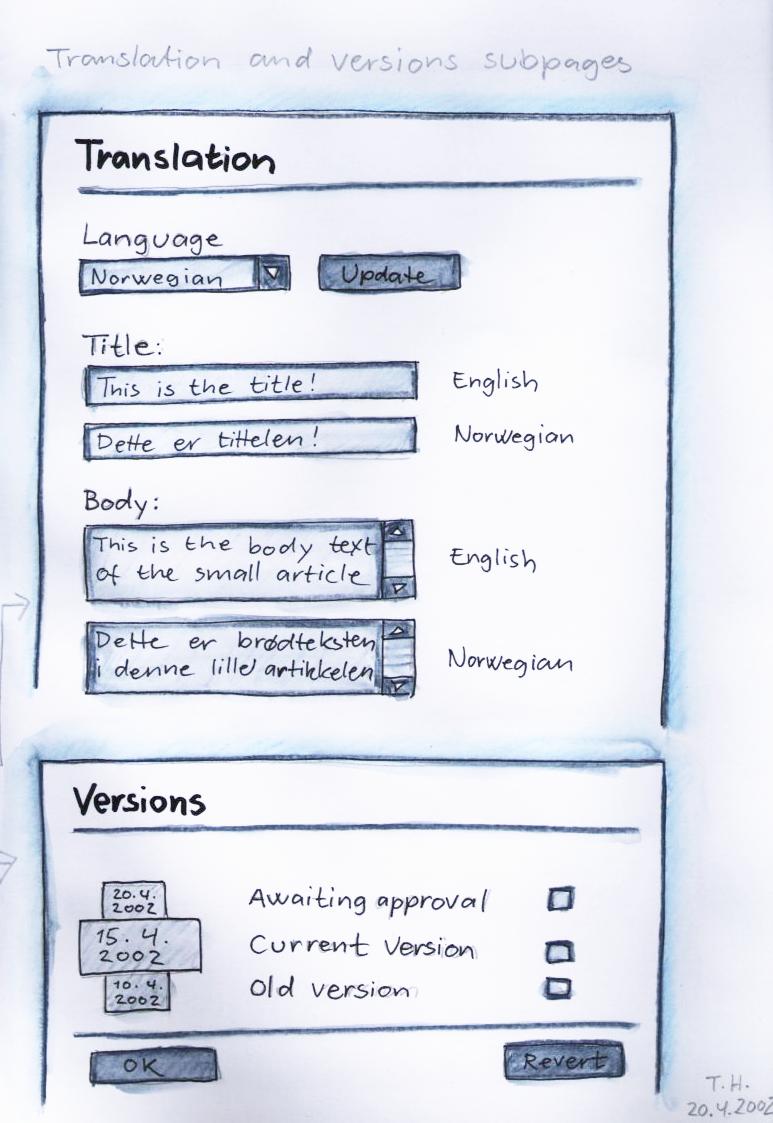 Translation and versions subpages
Translation
Language
Norwegian
Update
Title:
This is the title!
English
Dette er tittelen!
Norwegian
Body:
This is the body text
of the small article
English
Dette er brødteksten
i denne lille artikkelen
Norwegian
Versions
20.4.
2002
Awaiting approval
15.4.
2002
Current Version
10.4.
2002
Old version
OK
Revert
T.H.
20.4.2002